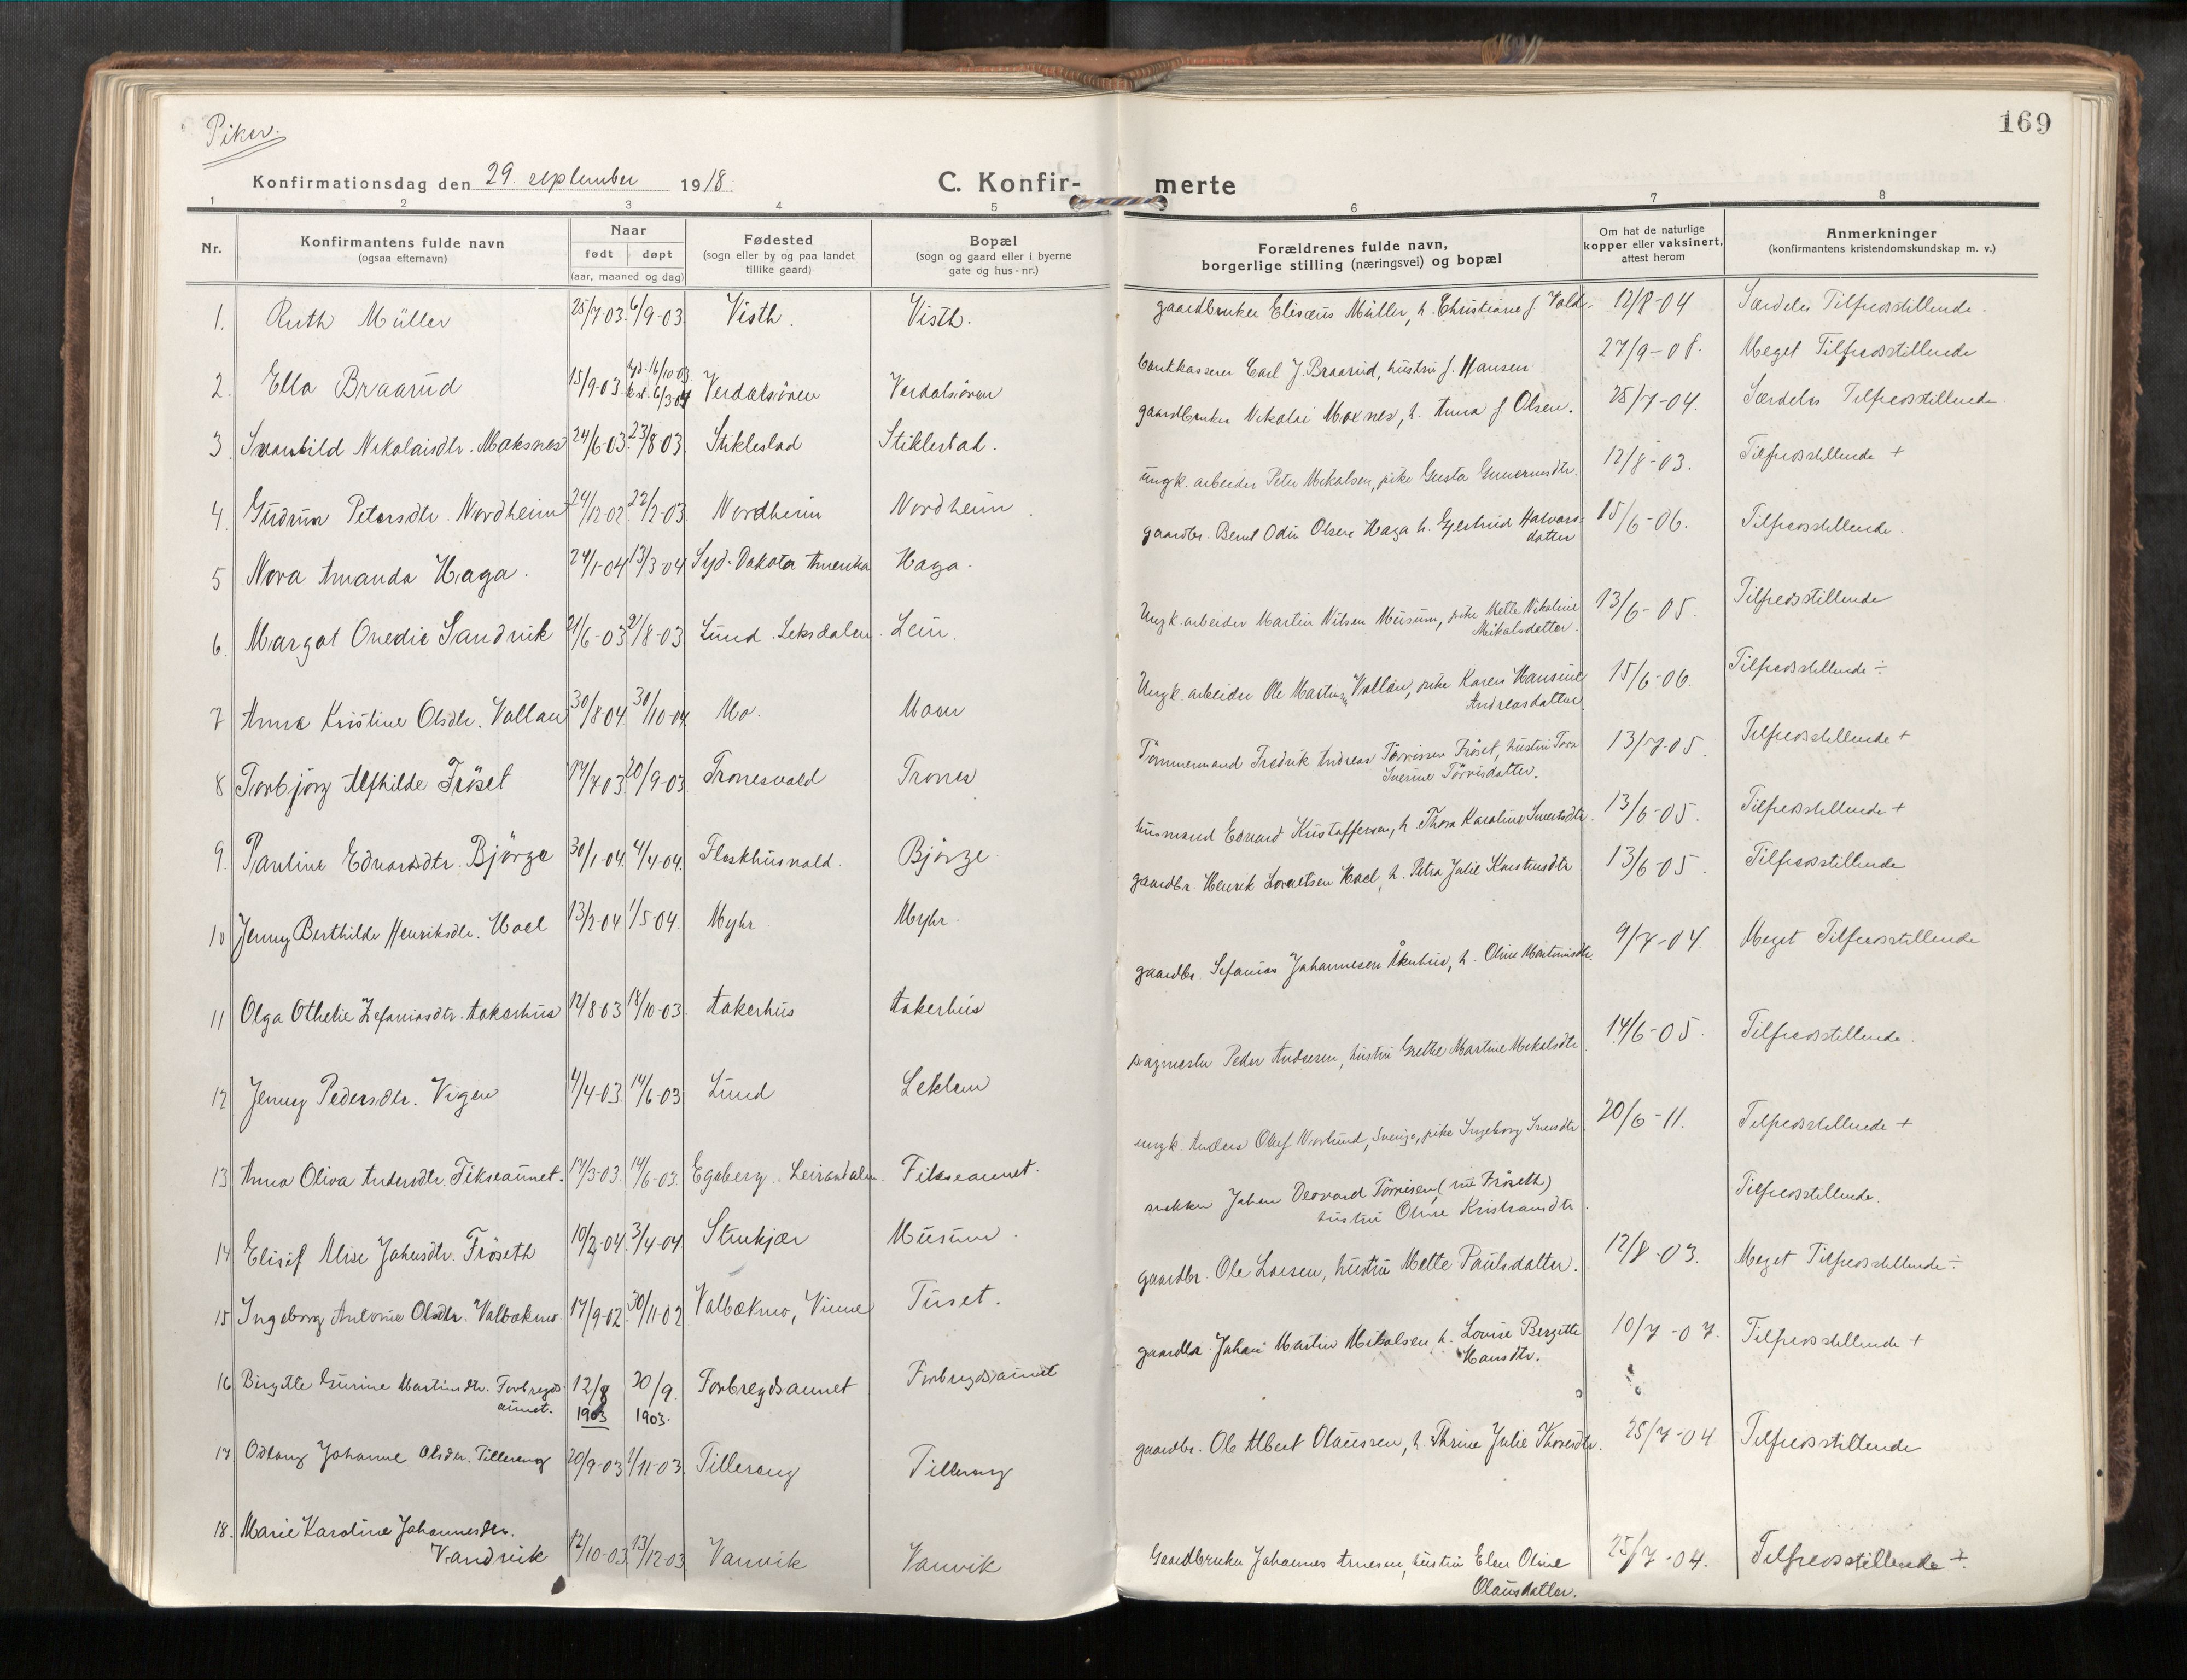 Piker.
169
Konfirmationsdag den 29. september 1918
C. Konfir-
merte
1 2 3 4 5 6 7 8
Nr.
Konfirmantens fulde navn
(ogsaa efternavn)
Naar
født døpt
(aar, maaned og dag)
Fødested
(sogn eller by og paa landet
tillike gaard)
Bopæl
(sogn og gaard eller i byerne
gate og hus-nr.)
Forældrenes fulde navn,
borgerlige stilling (næringsvei) og bopæl
Om hat de naturlige
kopper eller vaksinert,
attest herom
Anmerkninger
(konfirmantens kristendomskundskap m. v.)
1. Ruth Müller 25/7-03. 6/9-03 Visth. Visth. gaardbruker Elisæus Müller, h. Christiane f. Vold. 12/8-04 Særdeles Tilfredsstillende.
2. Ella Braarud 15/9-03 16/10-03 6/3-04 Verdalsøren Verdalsøren bankkasserer Carl J. Braarud, hustru f. Hansen. 27/9-08. Meget Tilfredsstillende
3. Svanhild Nikolaisdtr. Maksnes 24/6-03. 23/8-03. Stiklestad Stiklestad. gaardbruker Nikolai Moxnes, h. Anna f. Olsen. 25/7-04. Særdeles Tilfredsstillende
4. Gudrun Petersdtr. Nordheim 24/12-02. 22/2-03. Nordheim Nordheim. ungk. arbeider Peter Mikalsen, pike Gusta Gunerusdtr. 12/8-03. Tilfredsstillende +
5 Nora Amanda Haga. 24/1-04 13/3-04 Syd-Dakota Amerika Haga. gaardbr. Bernt Odin Olsen Haga h. Gjertrud Halvors-
datter 15/6-06. Tilfredsstillende.
6. Margot Ovedie Sandvik 21/6-03 2/8-03 Lund. Leksdalen. Lein. Ungk. arbeider Martin Nilsen Musum, pike Mette Nikoline
Mikalsdatter. 13/6-05. Tilfredsstillende
7 Anna Kristine Olsdtr. Vollan 30/8-04 30/10-04. Mo. Moen Ungk. arbeider Ole Martin Vollan, pike Karen Hansine
Andreasdatter. 15/6-06. Tilfredsstillende ÷
8 Torbjörg Alfhilde Fröset 17/7-03. 20/9-03 Tronesvald Trones Tömmermand Fredrik Andreas Törrissen Fröset, hustru Tora
Sverine Törrisdatter. 13/7-05. Tilfredsstillende +
9. Pauline Edvardsdtr. Björge 30/1-04. 4/4-04. Fleskhusvald. Björge. husmand Edvard Kristoffersen, h. Thora Karoline Sivertsdtr. 13/6-05. Tilfredsstillende +
10 Jenny Berthilde Henriksdtr. Hoel 13/2-04 1/5-04. Myhr Myhr. gaardbr. Henrik Lorentsen Hoel, h. Petra Julie Kristensdtr 13/6-05. Tilfredsstillende
11 Olga Othelie Zefaniasdtr. Aakerhus 12/8-03 18/10-03. Aakerhus Aakerhus gaardbr. Sefanias Johannesen Åkerhus, h. Oline Martinusdtr. 9/7-04. Meget Tilfredsstillende
12 Jenny Pedersdtr. Vigen 4/4-03. 14/6-03 Lund Leklem Peder Andersen, hustru Grethe Martine Mikalsdtr 14/6-05. Tilfredsstillende.
13 Anna Oliva Andersdtr. Fikseaunet. 17/3-03. 14/6-03. Egsberg. Leiraadalen. Fikseaunet. ungk. Anders Oluf Norlund, Sverige, pike Ingeborg Svensdtr. 20/6-11. Tilfredsstillende +
14 Elisif Alise Johansdtr. Fröseth 10/2-04. 3/4-04. Stenkjær Musum. snekker Johan Törrissen (nu Fröseth)
hustru Oline Kristiansdtr. Tilfredsstillende.
15 Ingeborg Antonie Olsdtr. Valbækmo. 17/9-02. 30/11-02 Valbækmo, Vinne Tuset. gaardbr. Ole Larsen, hustru Mette Paulsdatter. 12/8-03. Meget Tilfredsstillende ÷
16 Birgitte Gurine Martinsdtr. Forbregds-
aunet. 12/8
1903 20/9.
1903. Forbregdsaunet Forbregdsaunet gaardbr. Johan Martin Mikalsen h. Lovise Bergitte
Hansdtr. 10/7-07. Tilfredsstillende +
17 Oslaug Johanne Olsdtr. Tillereng 20/9-03 1/11-03. Tillereng Tillereng gaardbr. Ole Albert Olaussen, h. Thrine Julie Thoresdtr. 25/7-04 Tilfredsstillende
18. Marie Karoline Johannesdtr.
Vandvik 12/10-03. 13/12-03. Vanvik Vanvik Gaardbruker Johannes Arnesen, hustru Elen Oline
Olausdatter. 25/7-04. Tilfredsstillende ÷